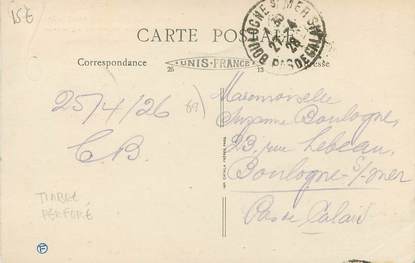 15€
BOULOGNE S. MER
PAS DE CALAIS
CARTE POSTALE
Correspondance
UNIS-FRANCE
26
13
25/4/26
C.B.
TIMBRE
PERFORÉ
Mademoiselle
Suzanne Boulogne
23, rue Lebeau,
Boulogne-s/-mer
Pas de Calais
F